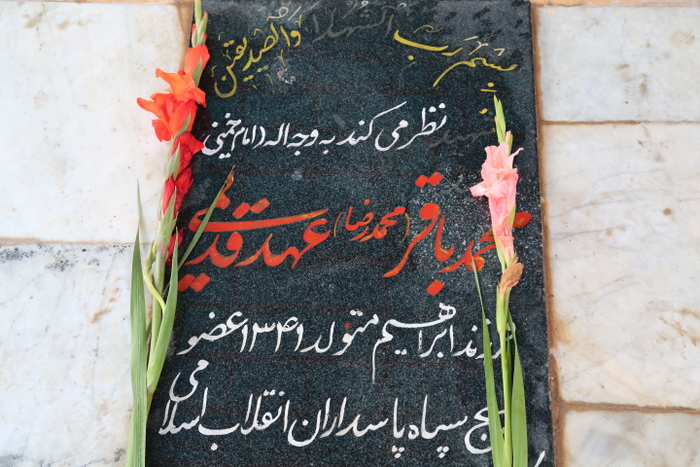 بسم رب الشهدا والصدیقین
شهید نظر می کند به وجه اله (امام خمینی)
محمد باقر (محمدرضا) عهد قدیمی
فرزند ابراهیم متولد ۱۳۴۱ عضو
بسیج سپاه پاسداران انقلاب اسلامی